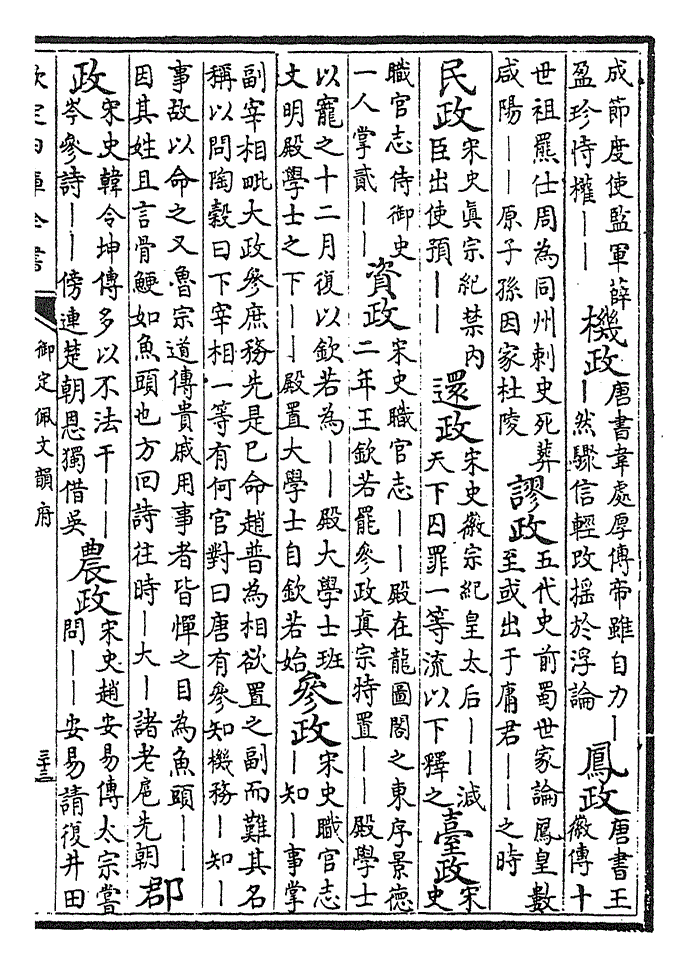 成節度使監軍薛
盈珍恃權——
機政
唐書韋處厚傳帝雖自力—
—然驟信輕改搖於浮論
鳳政
唐書王
徽傳十
世祖羆仕周為同州刺史死葬
咸陽——原子孫因家杜陵
謬政
五代史前蜀世家論鳳皇數
至或出于庸君——之時
民政
宋史眞宗紀禁内
臣出使預——
還政
宋史徽宗紀皇太后——減
天下囚罪一等流以下釋之
臺政
宋
史
職官志侍御史
一人掌貳——
資政
宋史職官志——殿在龍圖閣之東序景德
二年王欽若罷參政眞宗特置——殿學士
以寵之十二月復以欽若為——殿大學士班
文明殿學士之下——殿置大學士自欽若始
參政
宋史職官志
—知—事掌
副宰相毗大政參庶務先是已命趙普為相欲置之副而難其名
稱以問陶穀曰下宰相一等有何官對曰唐有參知機務—知—
事故以命之又魯宗道傳貴戚用事者皆憚之目為魚頭——
因其姓且言骨鯁如魚頭也方回詩往時—大—諸老扈先朝
郡
政
宋史韓令坤傳多以不法干——
岑參詩——傍連楚朝恩獨借吳
農政
宋史趙安易傳太宗嘗
問——安易請復井田
欽定四庫全書
御定佩文韻府